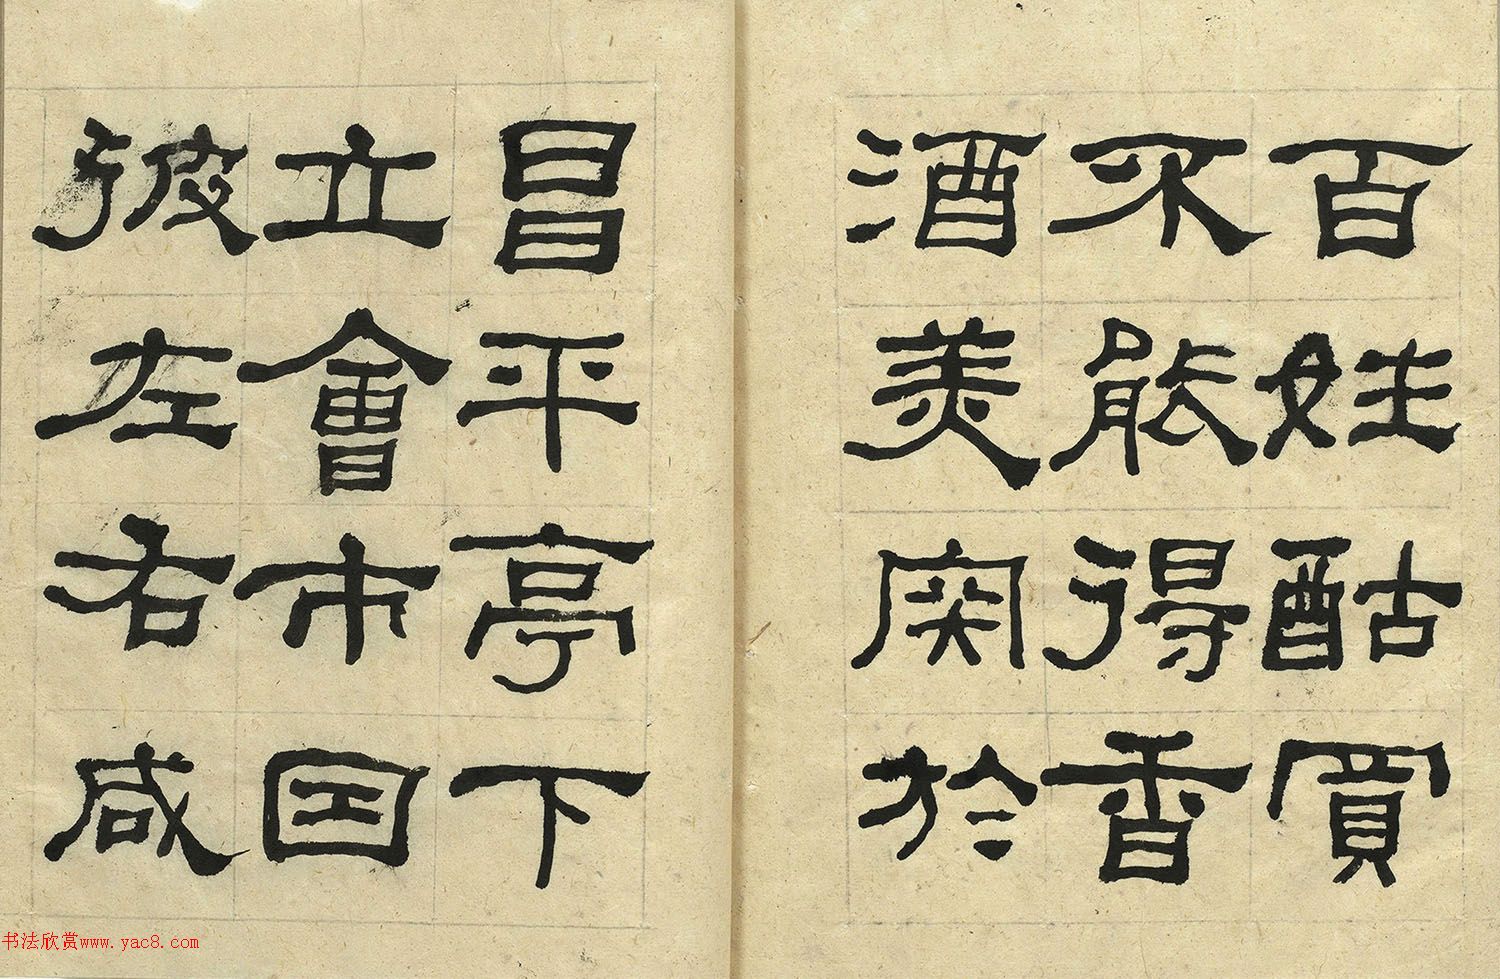 百姓酤買
不能得香
酒美肉於
昌平亭下
立會市因
彼左右咸
书法欣赏www.yac8.com